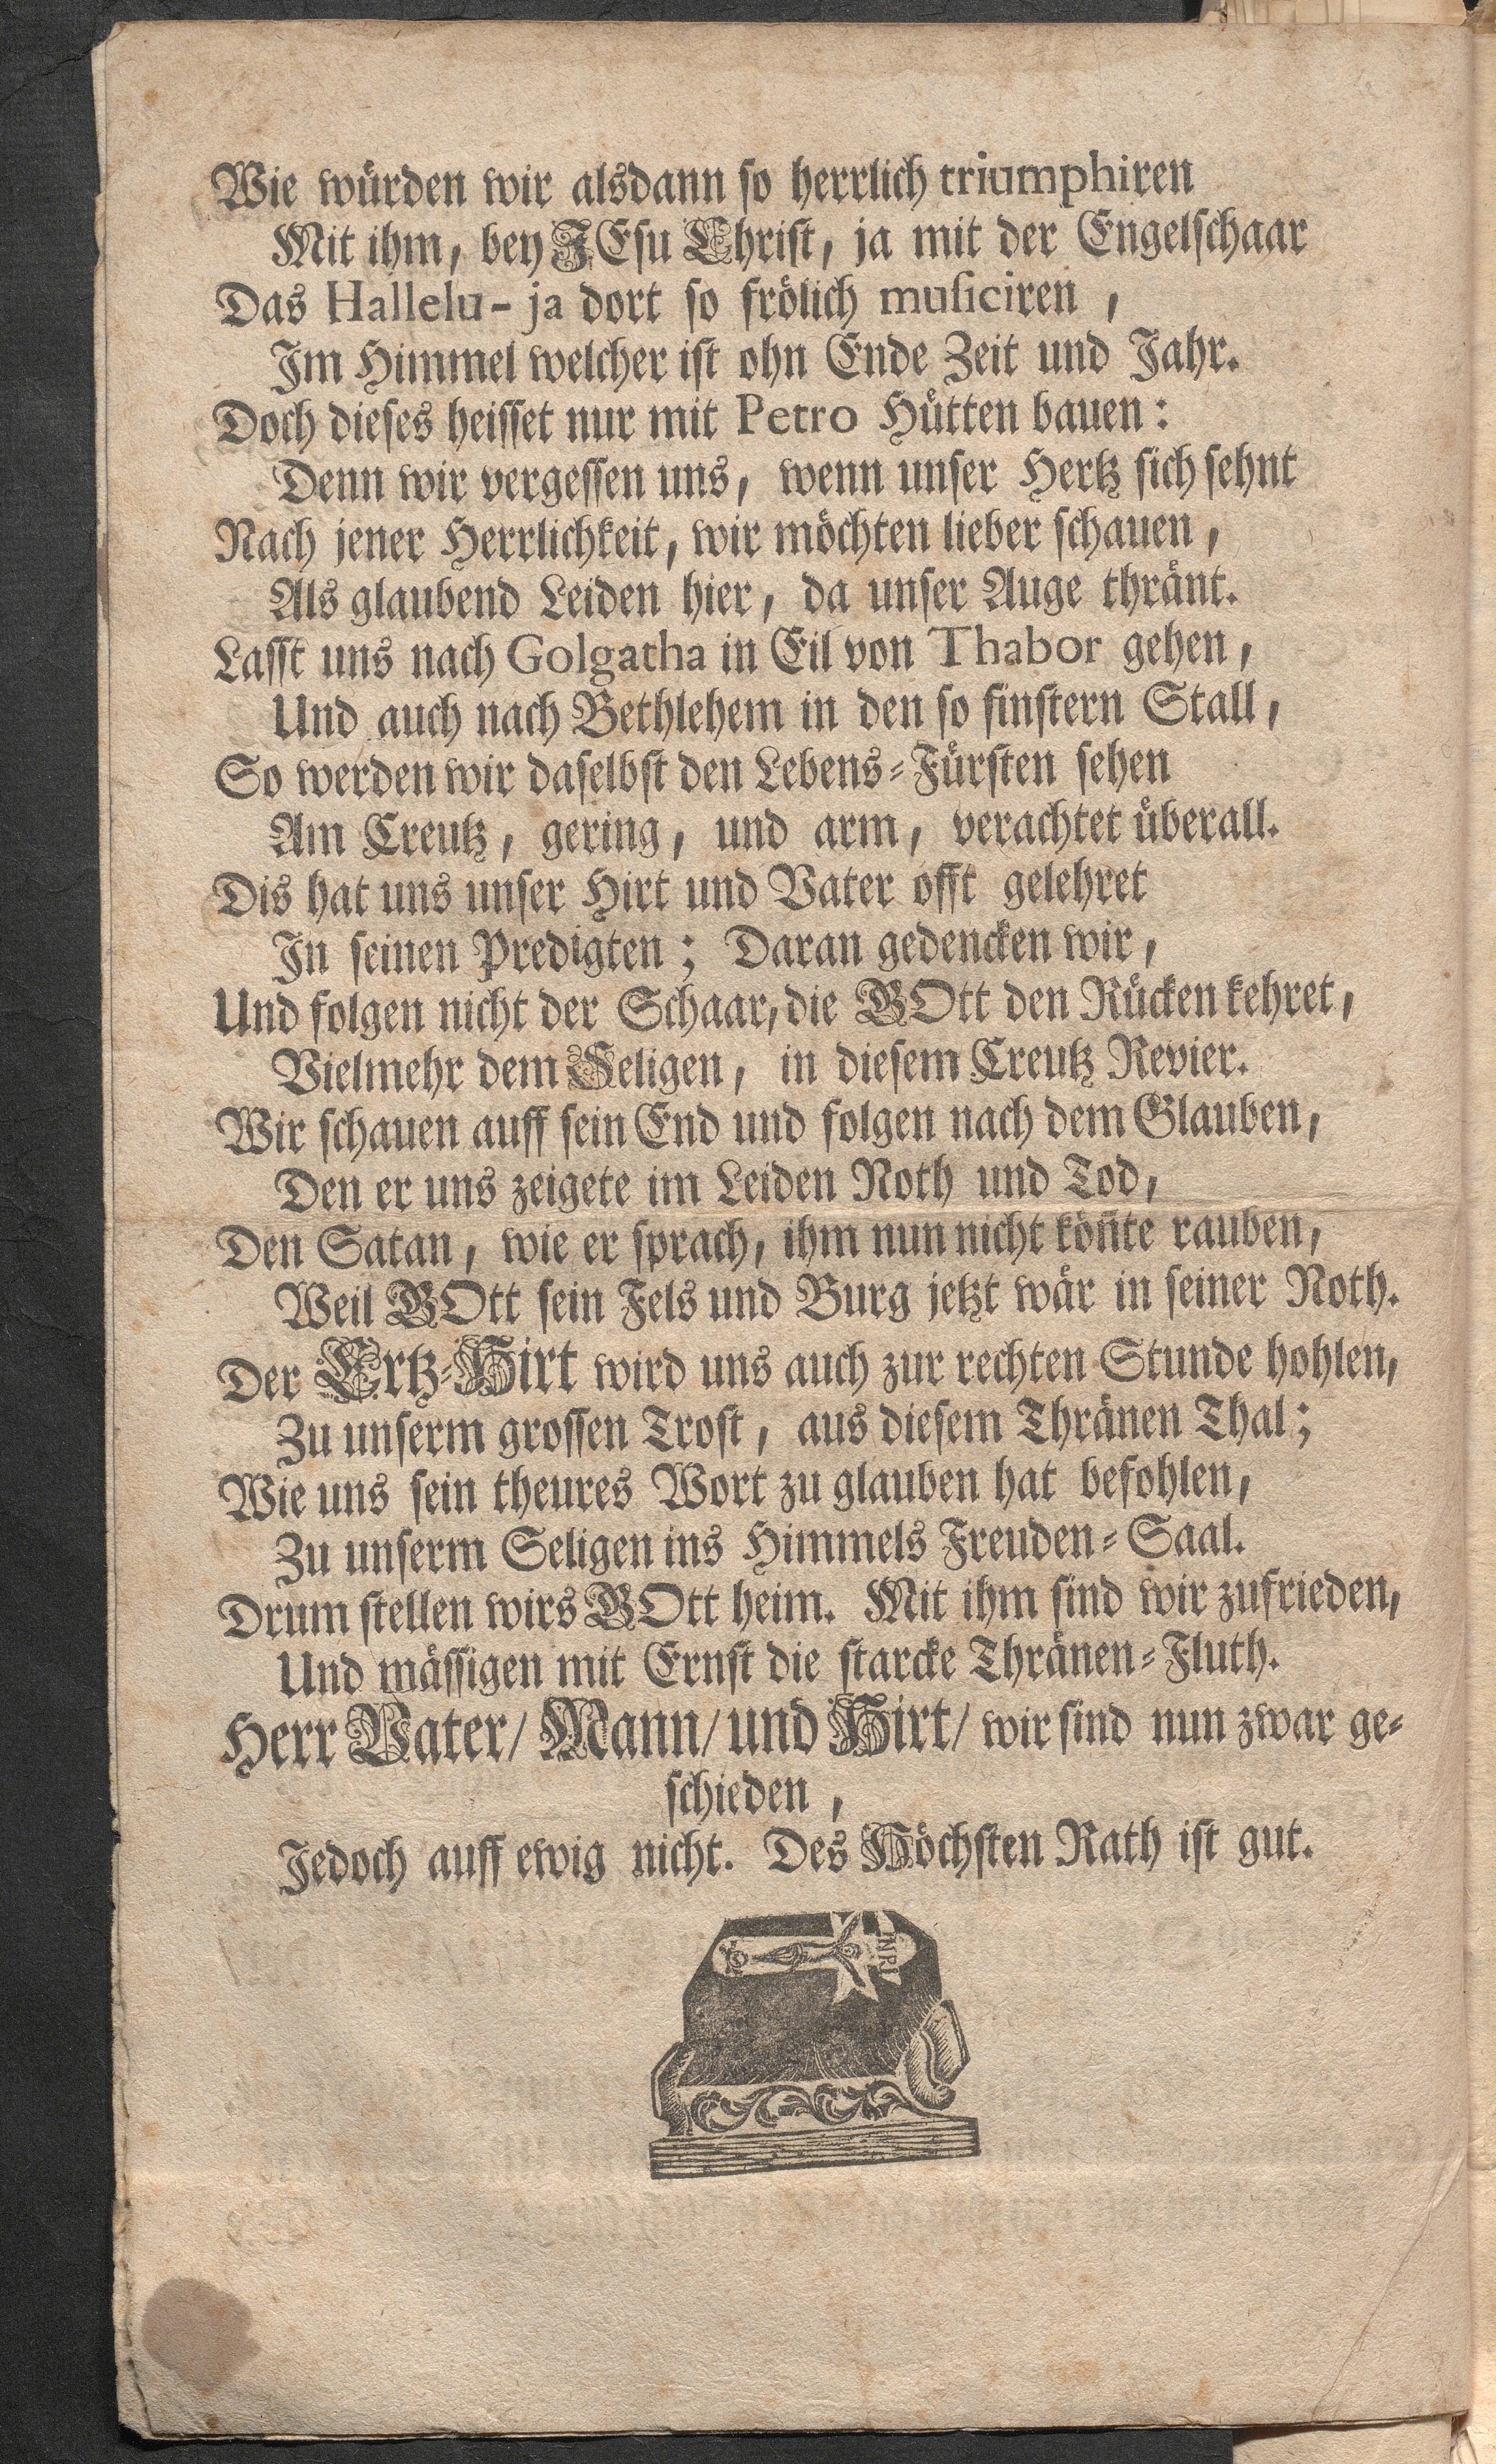 Wie würden wir alsdann so herrlich triumphiren
Mit ihm, bey JEsu Christ, ja mit der Engelschaar
Das Hallelu-ja dort so frölich musiciren,
Im Himmel welcher ist ohn Ende Zeit und Jahr.
Doch dieses heisset nur mit Petro Hütten bauen:
Denn wir vergessen uns, wenn unser Hertz sich sehnt
Nach jener Herrlichkeit, wir möchten lieber schauen,
Als glaubend Leiden hier, da unser Auge thränt.
Lasst uns nach Golgatha in Eil von Thabor gehen,
Und auch nach Bethlehem in den so finstern Stall,
So werden wir daselbst den Lebens-Fürsten sehen
Am Creutz, gering, und arm, verachtet überall.
Dis hat uns unser Hirt und Vater offt gelehret
In seinen Predigten; Daran gedencken wir,
Und folgen nicht der Schaar, die GOtt den Rücken kehret,
Vielmehr dem Seligen, in diesem Creutz Revier.
Wir schauen auff sein End und folgen nach dem Glauben,
Den er uns zeigete im Leiden Noth und Tod,
Den Satan, wie er sprach, ihm nun nicht köñte rauben,
Weil GOtt sein Fels und Burg jetzt wär in seiner Noth.
Der Ertz-Hirt wird uns auch zur rechten Stunde hohlen,
Zu unserm grossen Trost, aus diesem Thränen Thal;
Wie uns sein theures Wort zu glauben hat befohlen,
Zu unserm Seligen ins Himmels Freuden-Saal.
Drum stellen wirs GOtt heim. Mit ihm sind wir zufrieden,
Und mässigen mit Ernst die starcke Thränen-Fluth.
Herr Vater/ Mann/ und Hirt/ wir sind nun zwar ge-
schieden,
Jedoch auff ewig nicht. Des Höchsten Rath ist gut.
INRI